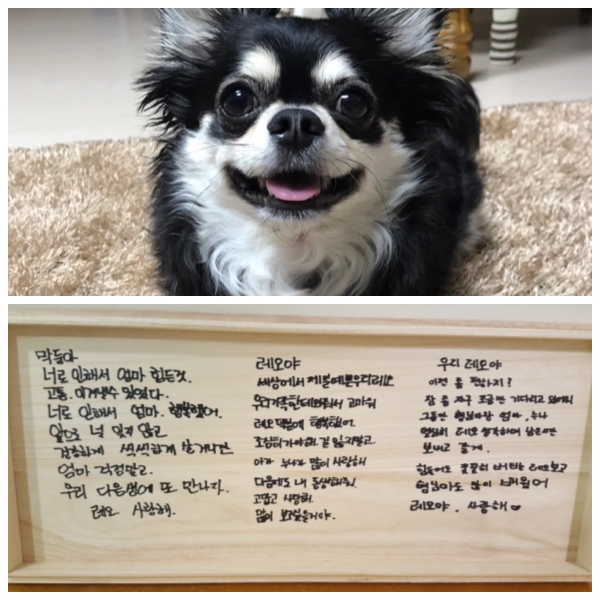 막둥아
너로 인해서 엄마 힘든것.
고통. 이겨낼수 있었다.
너로 인해서 엄마. 행복했어.
앞으로 널 잊지 않고
강하게 씩씩하게 살거니깐
엄마 걱정말고.
우리 다음생에 또 만나자.
레오 사랑해.
레오야
세상에서 제일예쁜우리레오
우리가족한테와줘서 고마워
레오덕분에 행복했어
조심히가야해. 길 잃지말고.
누나가 많이 사랑해
다음에도 내 동생해줘.
고맙고 사랑해.
많이 보고싶을거야.
우리 레오야
이젠 좀 편하지?
조금만 기다리고 있어
그동안 형님이랑 엄마, 누나
열심히 레오 생각하며 살다가
보러 갈게.
힘들어도 꿋꿋히 버티는 레오보고
형님아도 많이 배웠어
레오야. 사랑해